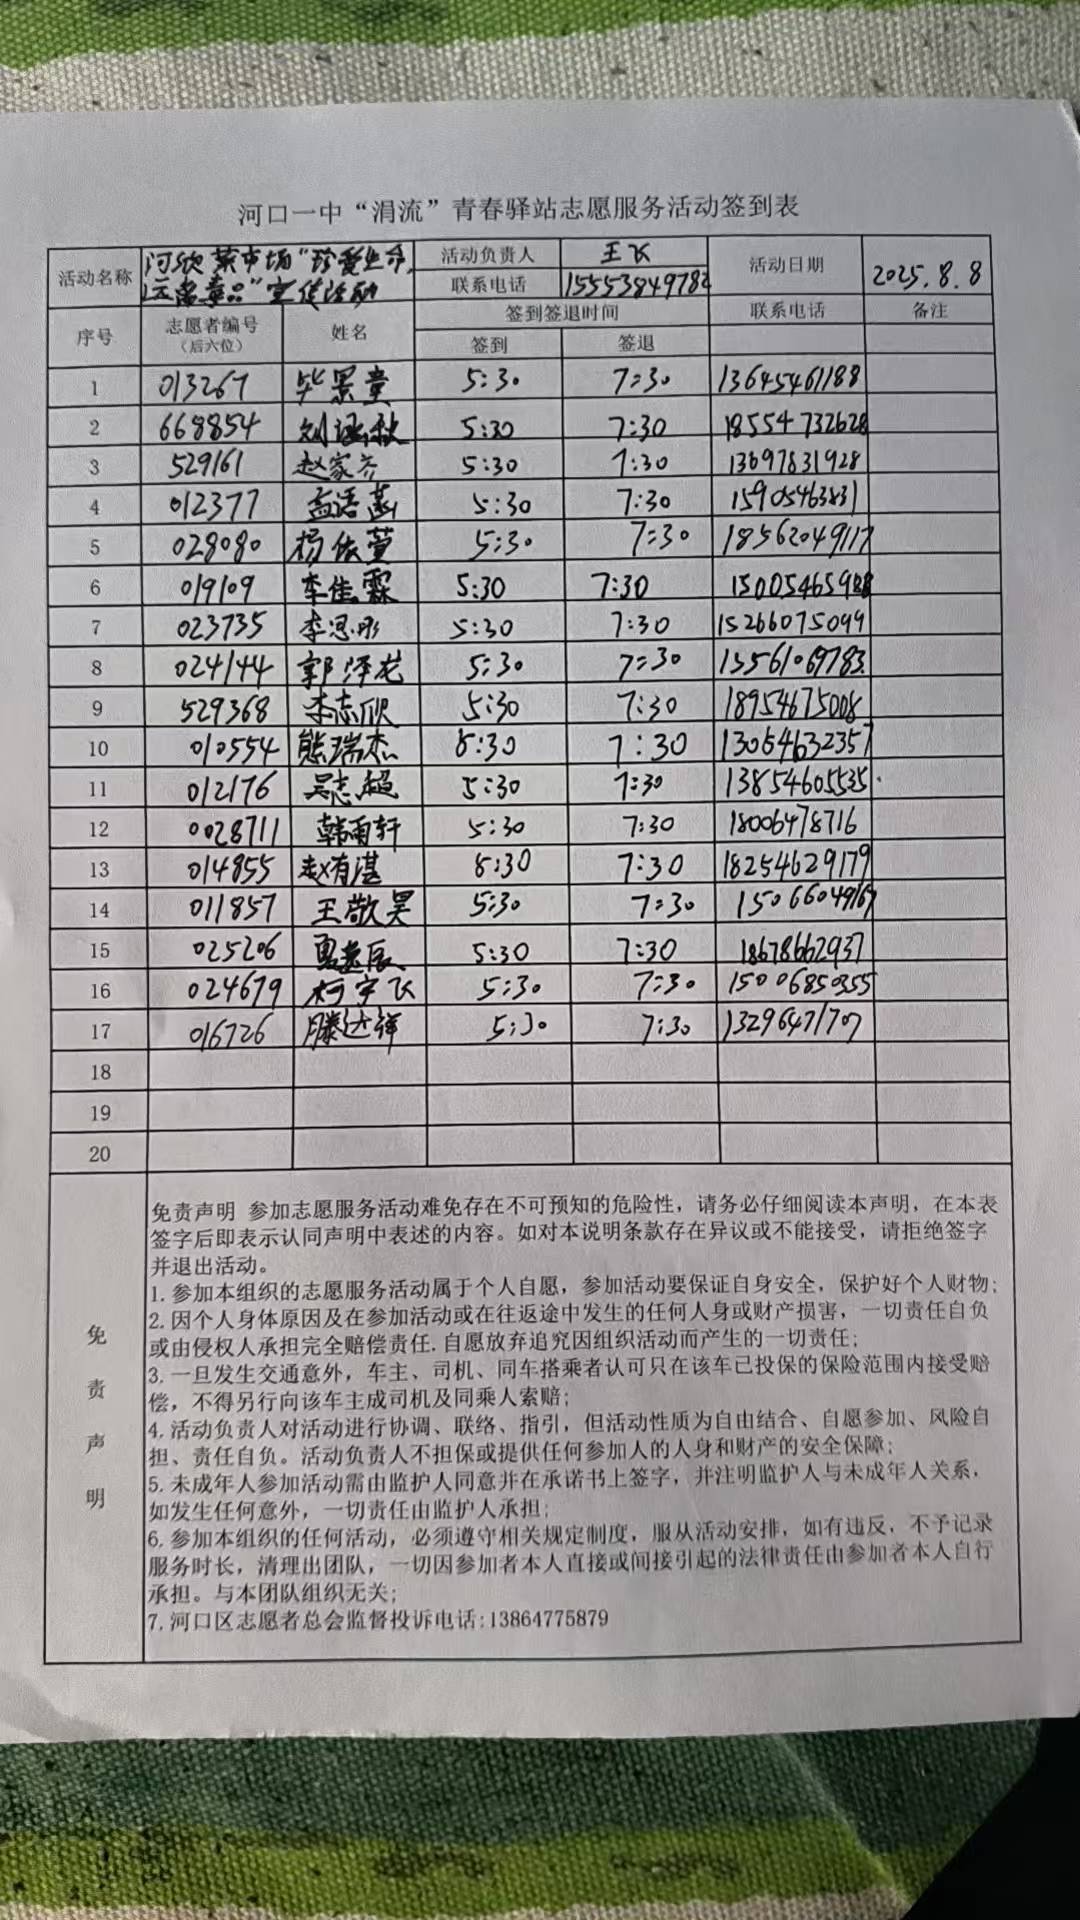 河口一中“涓流”青春驿站志愿服务活动签到表
活动名称 河欣菜市场“珍爱生命,远离毒品”宣传活动 活动负责人 王飞 活动日期 2025.8.8
联系电话 15553849782
序号 志愿者编号（后六位） 姓名 签到签退时间 联系电话 备注
签到 签退
1 013267 毕景童 5:30 7:30 13645461188
2 668854 刘涵秋 5:30 7:30 18554732628
3 529161 赵家齐 5:30 7:30 13697831928
4 012377 孟语菡 5:30 7:30 15905463831
5 028080 杨依萱 5:30 7:30 18562049117
6 019109 李佳霖 5:30 7:30 15005465988
7 023735 李思彤 5:30 7:30 15266075099
8 024144 郭泽龙 5:30 7:30 15561069783
9 529368 李志欣 5:30 7:30 18954675008
10 010554 熊瑞杰 5:30 7:30 13064632357
11 012176 吴志超 5:30 7:30 13854605535
12 0028711 韩雨轩 5:30 7:30 18006478716
13 014855 赵有湛 5:30 7:30 18254629179
14 011857 王敬昊 5:30 7:30 15066049167
15 025206 5:30 7:30 18678662937
16 024679 柯宇飞 5:30 7:30 15006850355
17 016726 滕达祥 5:30 7:30 13296471707
18
19
20
免责声明
免责声明 参加志愿服务活动难免存在不可预知的危险性，请务必仔细阅读本声明，在本表
签字后即表示认同声明中表述的内容。如对本说明条款存在异议或不能接受，请拒绝签字
并退出活动。
1.参加本组织的志愿服务活动属于个人自愿，参加活动要保证自身安全，保护好个人财物;
2.因个人身体原因及在参加活动或在往返途中发生的任何人身或财产损害，一切责任自负
或由侵权人承担完全赔偿责任.自愿放弃追究因组织活动而产生的一切责任;
3.一旦发生交通意外，车主、司机、同车搭乘者认可只在该车已投保的保险范围内接受赔
偿，不得另行向该车主成司机及同乘人索赔;
4.活动负责人对活动进行协调、联络、指引，但活动性质为自由结合、自愿参加、风险自
担、责任自负。活动负责人不担保或提供任何参加人的人身和财产的安全保障;
5.未成年人参加活动需由监护人同意并在承诺书上签字，并注明监护人与未成年人关系，
如发生任何意外，一切责任由监护人承担;
6.参加本组织的任何活动，必须遵守相关规定制度，服从活动安排，如有违反，不予记录
服务时长，清理出团队，一切因参加者本人直接或间接引起的法律责任由参加者本人自行
承担。与本团队组织无关;
7.河口区志愿者总会监督投诉电话:13864775879